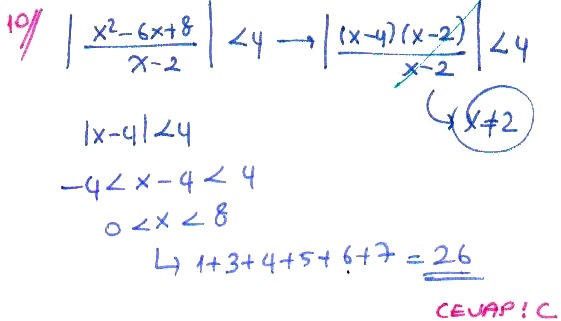 10// | (x²-6x+8)/(x-2) | <4 → | ((x-4)(x-2))/(x-2) | <4
x≠2
|x-4|<4
-4<x-4<4
0<x<8
↳ 1+3+4+5+6+7=26
CEVAP: C